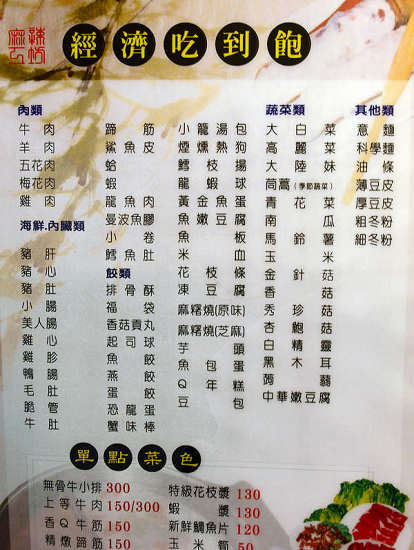 經濟吃到飽
肉類
牛肉
羊肉
五花肉
梅花肉
雞肉
海鮮.內臟類
豬肝
豬心
豬肚
小腸
美人腸
雞心
雞胗
鴨腸
毛肚
脆管
牛肚
蹄筋
鯊魚皮
蛤
蝦
龍魚肉
曼波魚膠
小卷
鱈魚肚
餃類
排骨酥
福袋
香菇貢丸
起司球
魚餃
燕餃
蛋餃
恐龍蛋
蟹味棒
小龍湯包
煙燻熱狗
鱈枝揚
龍蝦球
黃金魚蛋
魚嫩豆腐
魚板
米血
花枝條
凍豆腐
麻糬燒(原味)
麻糬燒(芝麻)
芋頭
魚包蛋
Q年糕
豆包
蔬菜類
大白菜
高麗菜
大陸妹
茼蒿(季節蔬菜)
青花菜
南瓜
馬鈴薯
玉米
金針菇
香菇
秀珍菇
杏鮑菇
白精靈
黑木耳
蒟蒻
中華嫩豆腐
其他類
意麵
科學麵
油條
薄豆皮
厚豆皮
粗冬粉
細冬粉
單點菜色
無骨牛小排 300
上等牛肉 150/300
香Q牛筋 150
精燉蹄筋 150
特級花枝漿 130
蝦漿 130
新鮮鯛魚片 120
玉米筍 50